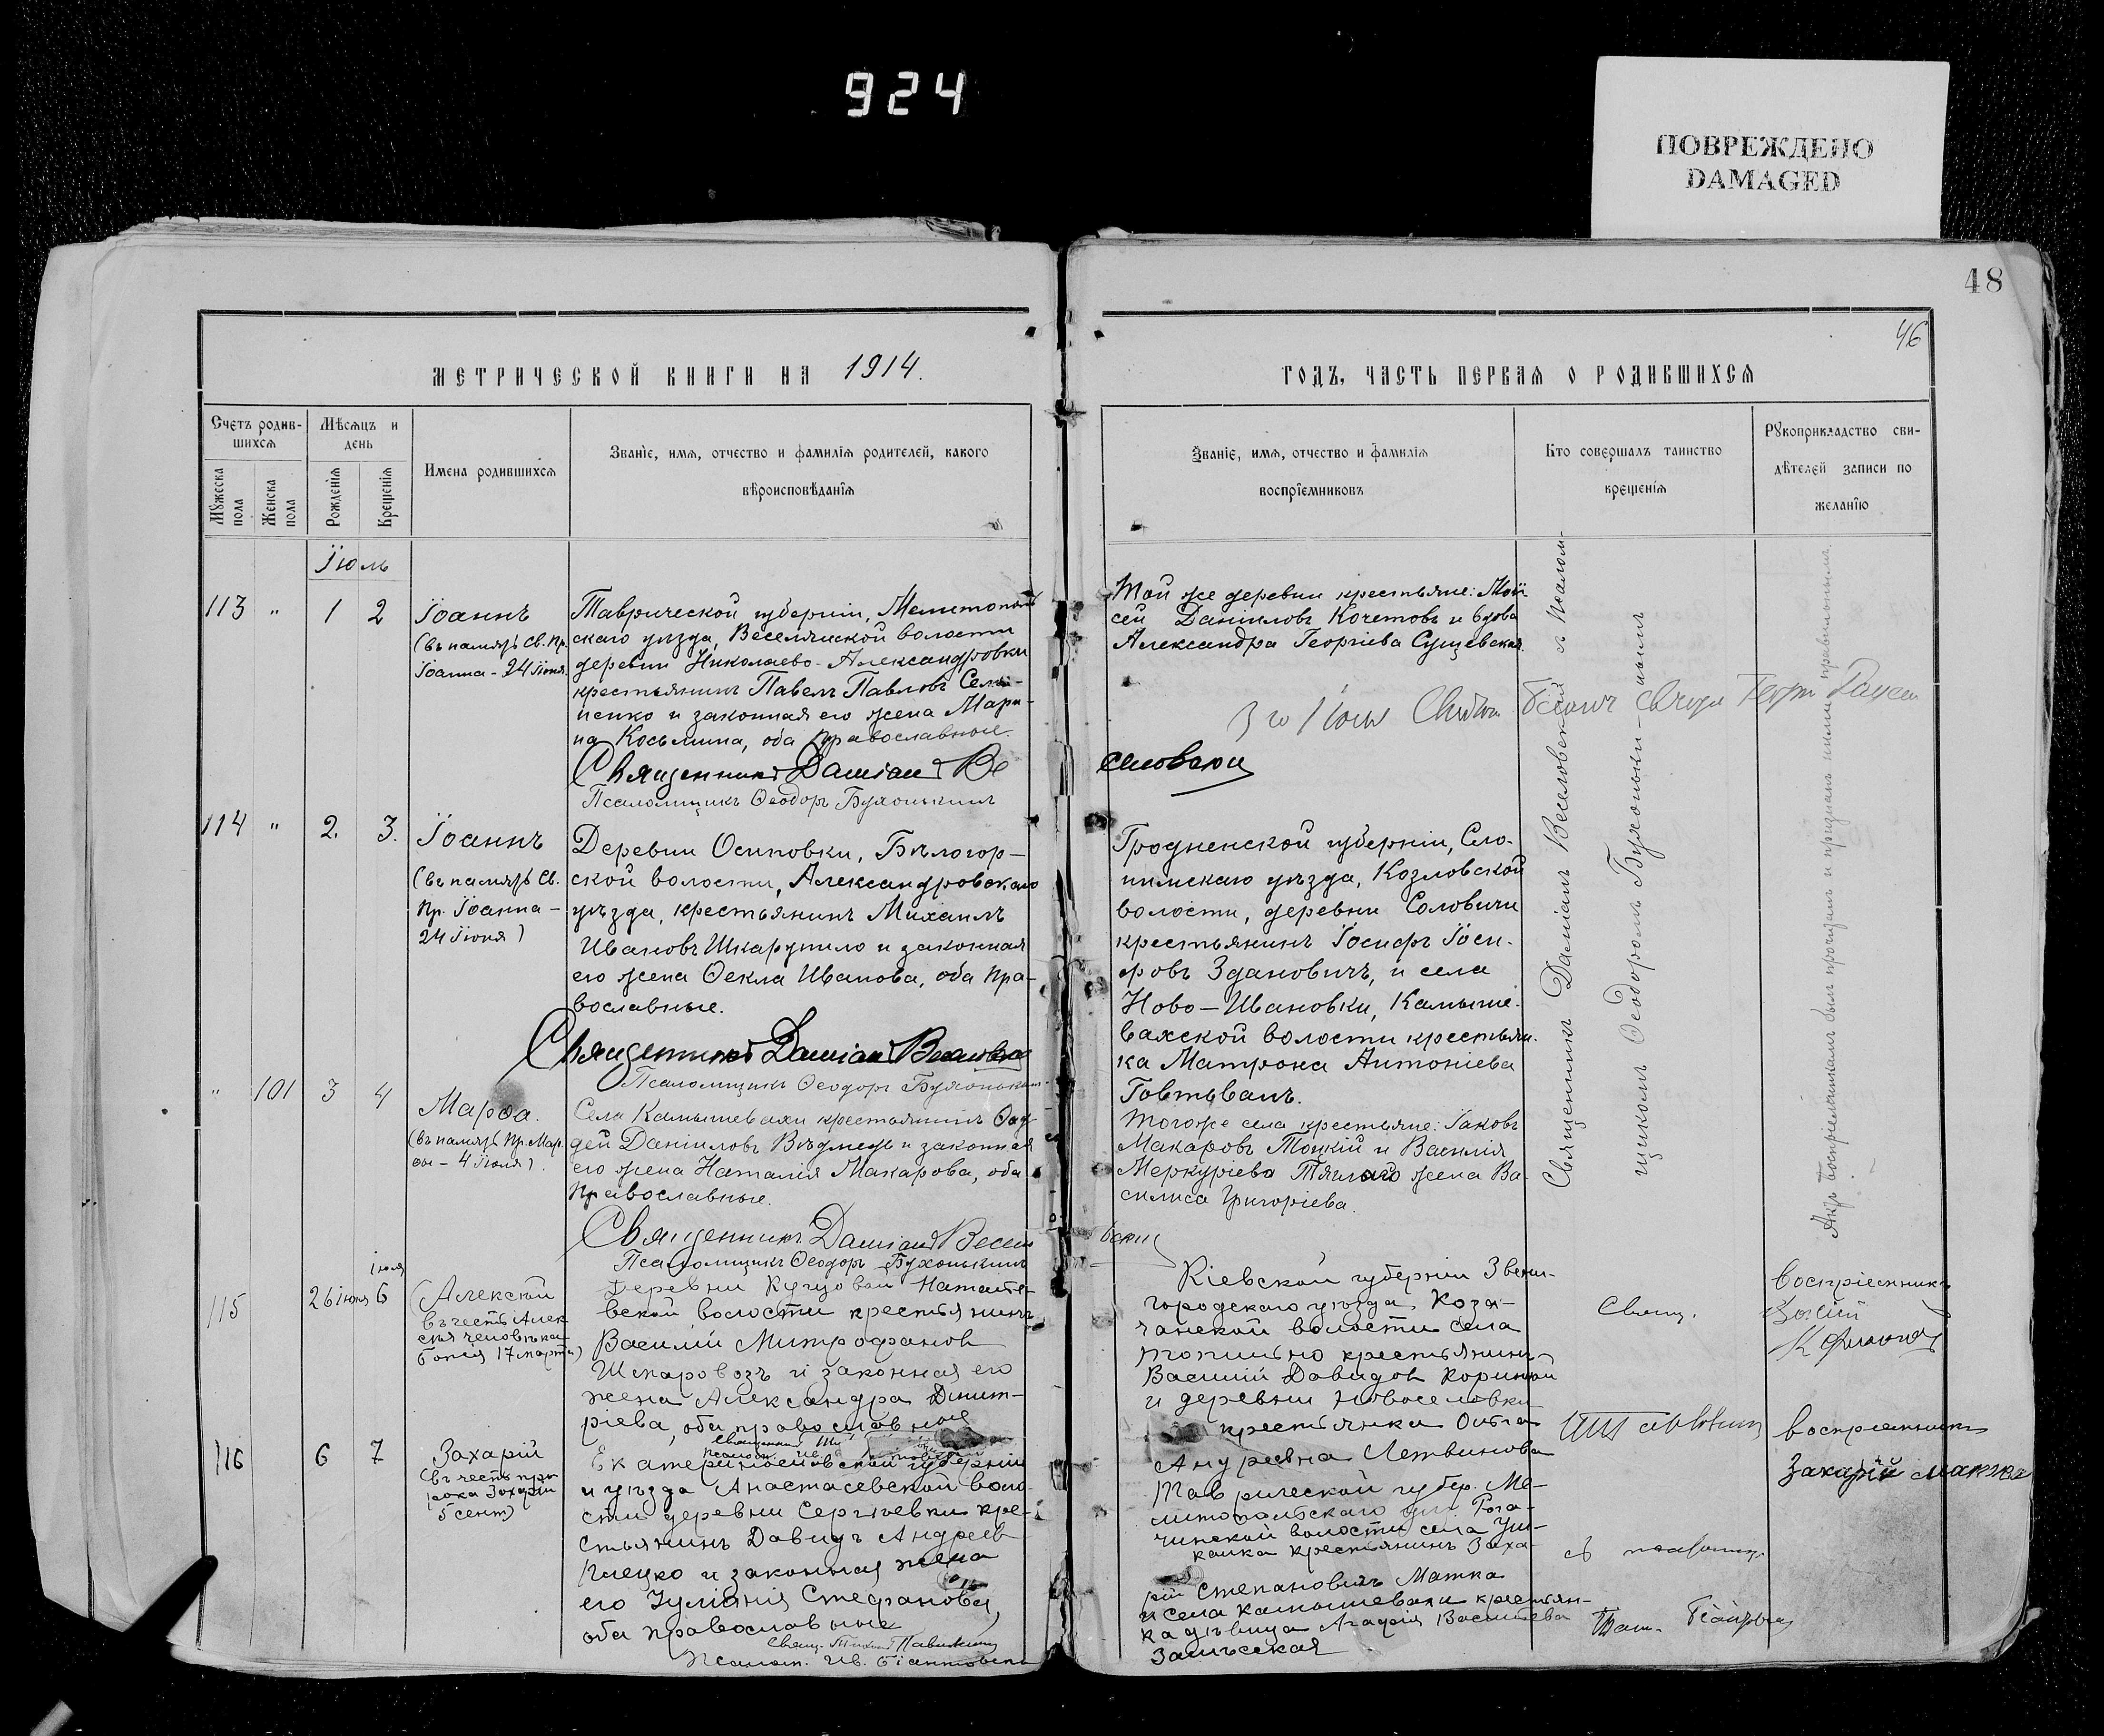 924
ПОВРЕЖДЕНО
DAMAGED
48
46
МЕТРИЧЕСКОЙ КНИГИ НА 1914.
ГОДЪ, ЧАСТЬ ПЕРВАЯ О РОДИВШИХСЯ
Счетъ родив-
шихся
Мужеска
пола
Женска
пола
Мѣсяцъ и
день
Рожденія
Крещенія
Имена родившихся
Званіе, имя, отчество и фамилія родителей, какого
вѣроисповѣданія
Званіе, имя, отчество и фамилія
воспріемниковъ
Кто совершалъ таинство
крещенія
Рукоприкладство сви-
дѣтелей записи по
желанію
Іюль
113 " 1 2
Іоаннъ
(въ память Св. Пр.
Іоанна - 24 Іюня.
Таврической губерніи, Мелитополь
скаго уѣзда, Веселянской волости
деревни Николаево-Александровки
крестьянинъ Павелъ Павловъ
и законная его жена Мари-
на Косьмина, оба православные.
Священникъ Даміанъ Ве
селовскій
Псаломщикъ Ѳеодоръ Бухонькинъ
Той же деревни крестьяне: Мои
сей Даніиловъ Кочетовъ и вдова
Александра Георгіева Сущевская.
114 " 2. 3.
Іоаннъ
(въ память Св.
Пр. Іоанна -
24 Іюня)
Деревни Осиповки, Бѣлогор-
ской волости, Александровскаго
уѣзда, крестьянинъ Михаилъ
Ивановъ Шкарупило и законная
его жена Ѳекла Иванова, оба пра-
вославные.
Священникъ Даміанъ Веселовскій
Псаломщикъ Ѳеодоръ Бухонькинъ
Гродненской губерніи, Сло-
нимскаго уѣзда, Козловской
волости, деревни Соловичи
крестьянинъ Іосифъ Іоси-
фовъ Здановичъ, и села
Ново-Ивановки, Камыше-
вахской волости крестьян-
ка Матрона Антоніева
Говтванъ.
" 101 3 4
Марѳа.
(въ память Пр. Мар-
ѳы - 4 Іюля).
Села Камышевахи крестьянинъ Ѳад-
дей Даніиловъ Вѣдмедь и законная
его жена Наталія Макарова, оба
православные.
Священникъ Даміанъ Весел
Псаломщикъ Ѳеодоръ Бухонькинъ
Того же села крестьяне: Іаковъ
Макаровъ Тоцкій и Василія
Меркуріева Тяглаго жена Ва-
силиса Григоріева.
Священникъ Даміанъ Веселовскій съ псалом-
щикомъ Ѳеодоромъ Бухонькинымъ
115
26 іюня
іюля
6
Алексій
въ честь Алек
сѣя человѣка
Божія 17 марта)
Деревни Куцовой Наталье-
вской волости крестьянинъ
Василій Митрофановъ
Шпаровозъ и законная его
жена Александра Димит-
ріева, оба православные
Кіевской губерніи Звени-
городскаго уѣзда, Коза-
чанской волости села
крестьянинъ
Василій Давидовъ
и деревни Новоселовки
крестьянка Ольга
Андреевна Летвинова
Свящ.
воспріемникъ
116 6 7
Захарій
(въ честь про
рока Захаріи
5 сент)
Екатеринославской губерніи
и уѣзда Анастасевской воло-
сти деревни Сергѣевки кре-
стьянинъ Давидъ Андреевъ
и законная жена
его Іуліанія Стефановa,
оба православные
Таврической губер. Ме-
литопольскаго уѣз. Рога-
чинской волости села Уш-
калка крестьянинъ Заха-
рій Степановичъ Матка
и села Камышевахи крестьян-
ка дѣвица Агафія Васильева
Залѣсская
воспріемникъ
Захарій